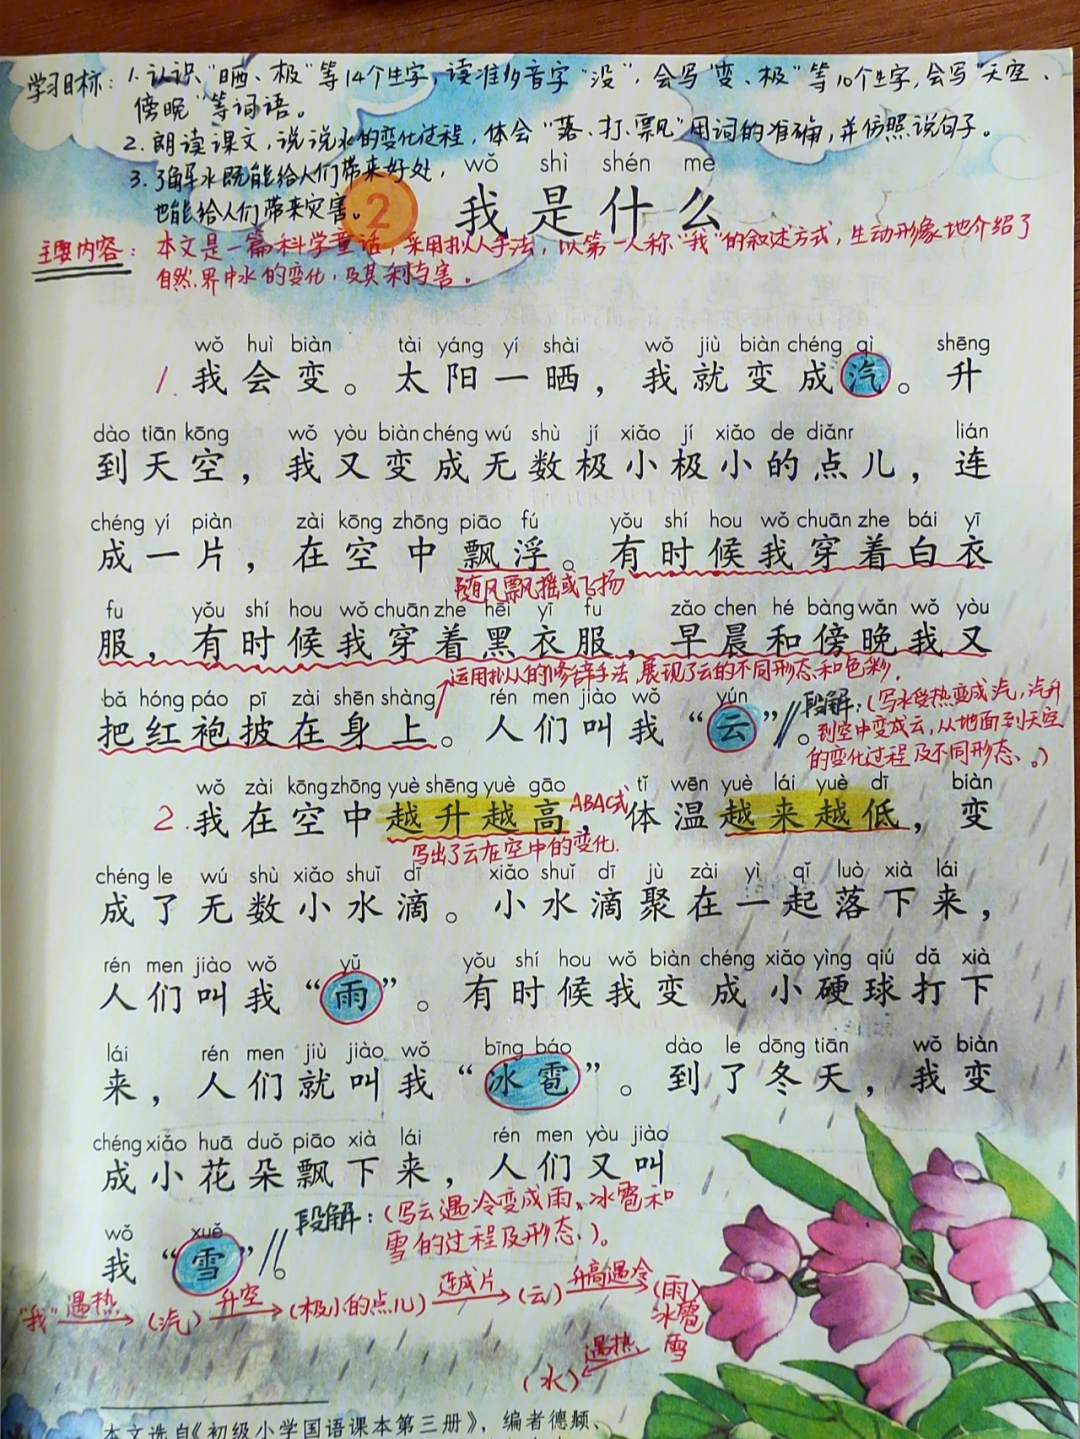 学习目标：1.认识“晒、极”等14个生字，读准多音字“没”，会写“变、极”等10个生字，会写“天空、
傍晚”等词语。
2.朗读课文，说说水的变化过程，体会“落、打、飘”用词的准确，并仿照说句子。
3.了解水既能给人们带来好处，
也能给人们带来灾害。
wǒ shì shén me
2 我是什么
主要内容：本文是一篇科学童话，采用拟人手法，以第一人称“我”的叙述方式，生动形象地介绍了
自然界中水的变化，及其利与害。
wǒ huì biàn tài yáng yí shài wǒ jiù biàn chéng qì shēng
1.我会变。太阳一晒，我就变成汽。升
dào tiān kōng wǒ yòu biàn chéng wú shù jí xiǎo jí xiǎo de diǎnr lián
到天空，我又变成无数极小极小的点儿，连
chéng yí piàn zài kōng zhōng piāo fú yǒu shí hou wǒ chuān zhe bái yī
成一片，在空中飘浮。有时候我穿着白衣
随风飘摇或飞扬
fu yǒu shí hou wǒ chuān zhe hēi yī fu zǎo chen hé bàng wǎn wǒ yòu
服，有时候我穿着黑衣服，早晨和傍晚我又
运用拟人的修辞手法，展现了云的不同形态和色彩。
bǎ hóng páo pī zài shēn shàng rén men jiào wǒ yún
把红袍披在身上。人们叫我“云”。
段解：（写水受热变成汽，汽升
到空中变成云，从地面到天空
的变化过程及不同形态。）
wǒ zài kōng zhōng yuè shēng yuè gāo tǐ wēn yuè lái yuè dī biàn
2.我在空中越升越高，体温越来越低，变
ABAC式
写出了云在空中的变化.
chéng le wú shù xiǎo shuǐ dī xiǎo shuǐ dī jù zài yì qǐ luò xià lái
成了无数小水滴。小水滴聚在一起落下来，
rén men jiào wǒ yǔ yǒu shí hou wǒ biàn chéng xiǎo yìng qiú dǎ xià
人们叫我“雨”。有时候我变成小硬球打下
lái rén men jiù jiào wǒ bīng báo dào le dōng tiān wǒ biàn
来，人们就叫我“冰雹”。到了冬天，我变
chéng xiǎo huā duǒ piāo xià lái rén men yòu jiào
成小花朵飘下来，人们又叫
wǒ xuě
我“雪”。
段解：（写云遇冷变成雨、冰雹和
雪的过程及形态。）。
“我” 遇热 （汽） 升空 （极小的点儿） 连成片 （云） 升高遇冷 （雨）
冰雹
雪
遇热
（水）
本文选自《初级小学国语课本第三册》，编者德颎、